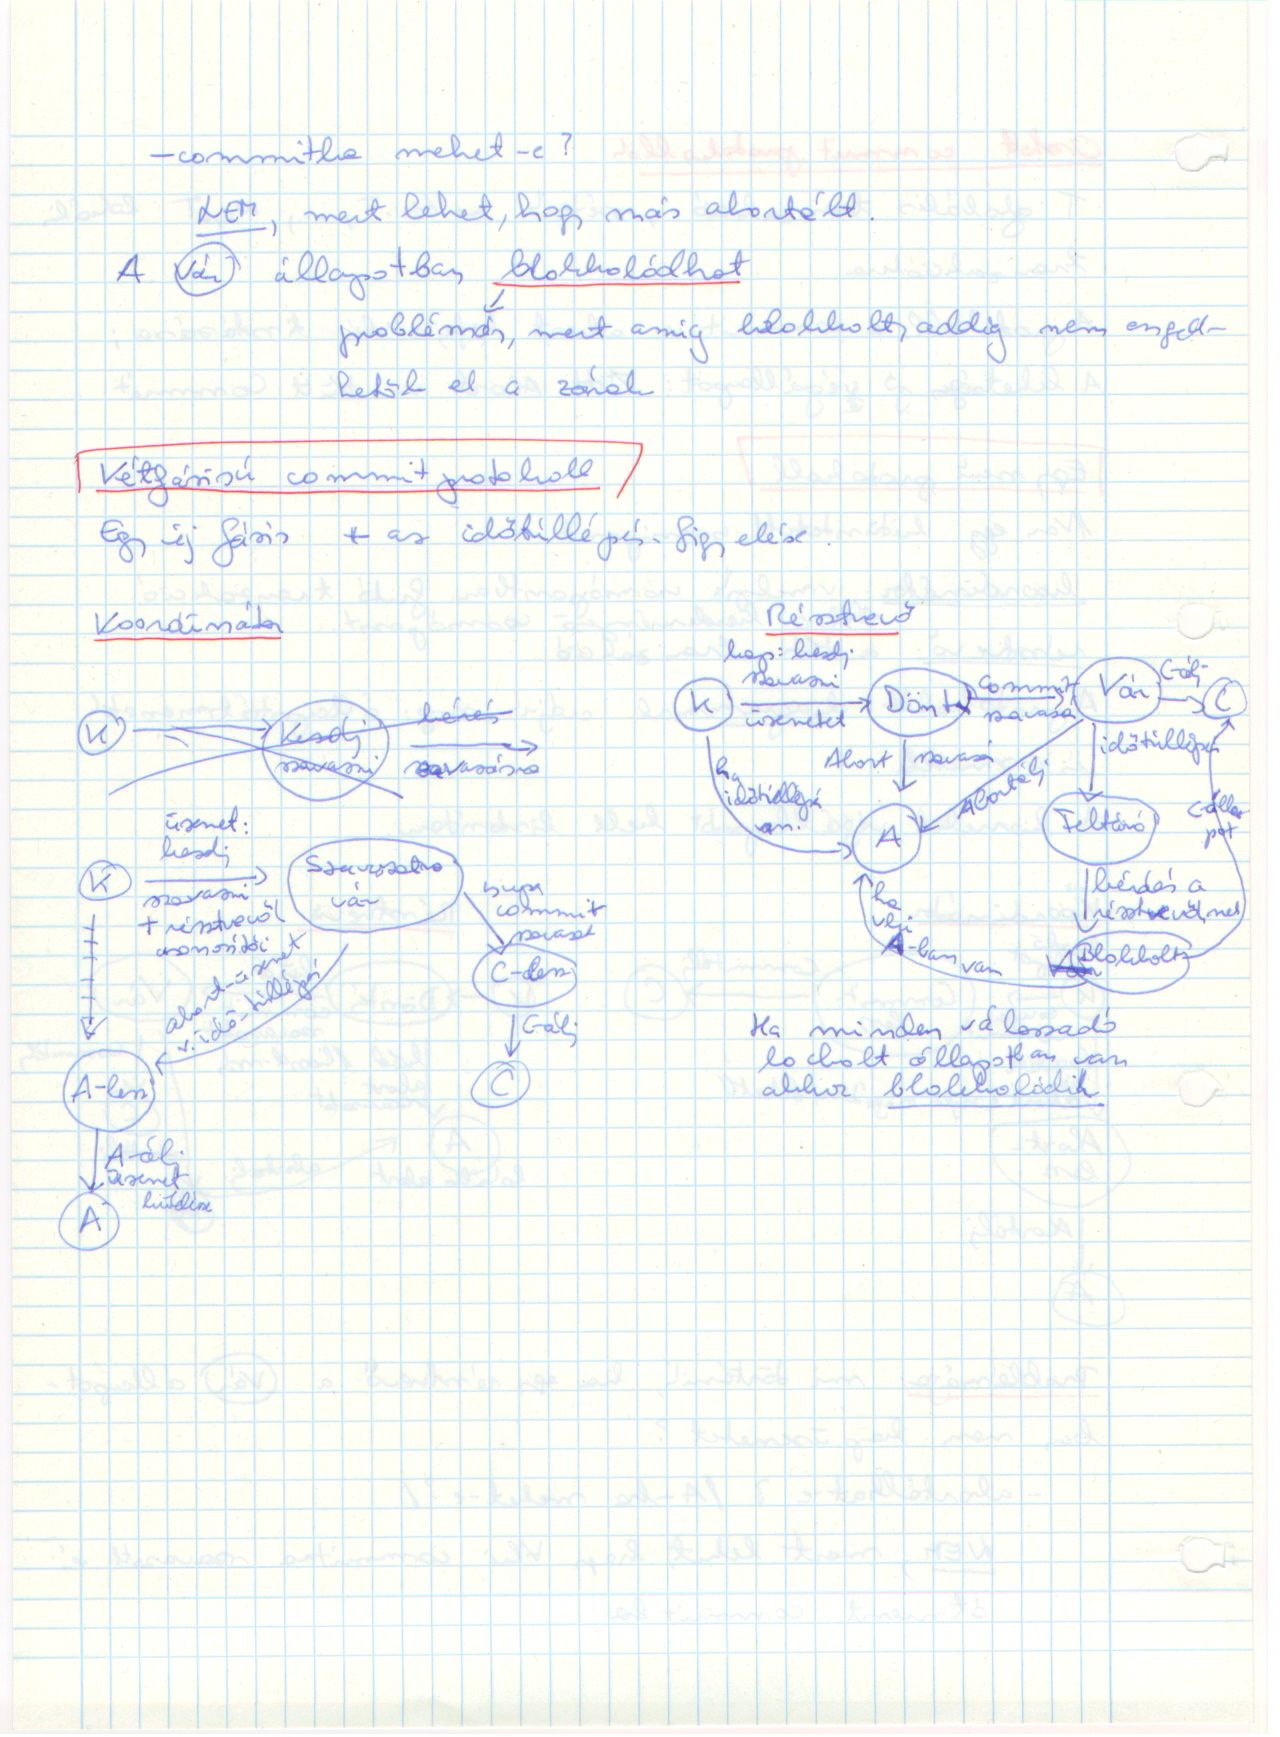 – commitba mehet-e?
NEM, mert lehet, hogy más abortált.
A Vár állapotban blokkolódhat
problémás, mert amíg blokkolt, addig nem enged-
hetők el a zárak
Kétfázisú commit protokoll
Egy új fázis + az időtúllépés-figyelése.
Koordinátor
K
Kezdj szavazni
kérés
szavazásra
K
üzenet:
kezdj
szavazni
+ résztvevők
azonosítói
Szavazatra
vár
commit
szavazat
C-lesz
C-álj
C
abort-üzenet
v. idő-túllépés
A-lesz
A-álj
üzenet
küldése
A
Résztvevő
K
kap: kezdj
szavazni
üzenetet
Dönt
commit
szavazás
Vár
C-álj
C
ha
időtúllépés
van.
Abort szavazás
A
Abortálj
időtúllépés
Feltáró
kérdés a
résztvevőknek
Blokkolt
C-álla-
pot
ha
vki
A-ban van
Ha minden válaszadó
blokkolt állapotban van
akkor blokkolódik